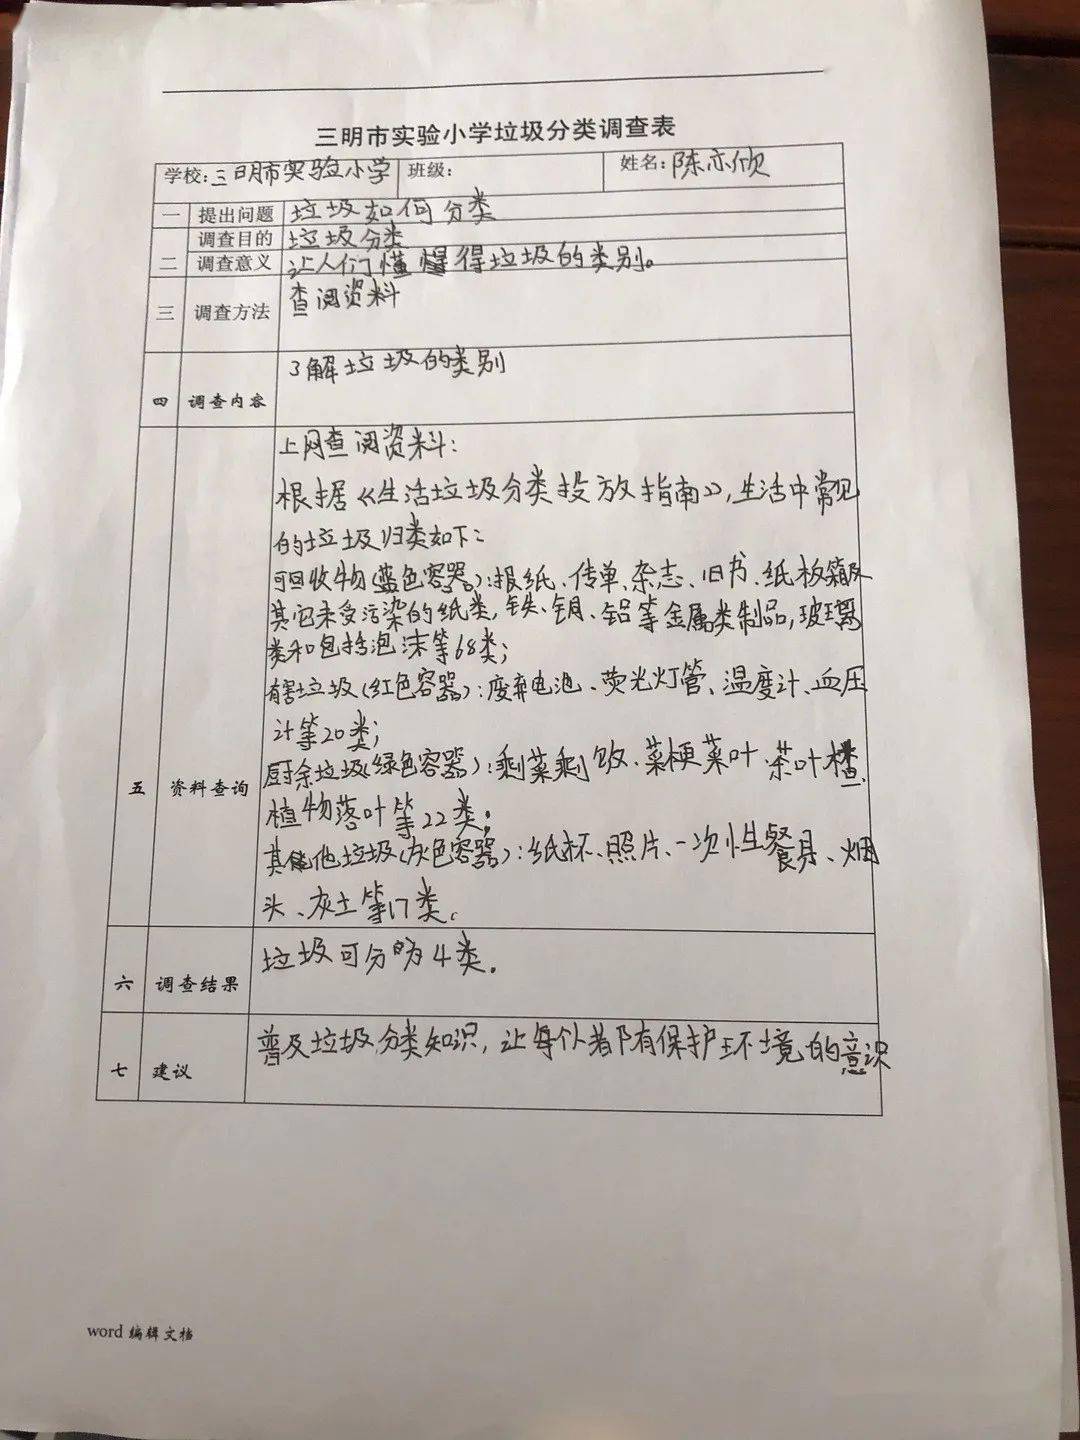 三明市实验小学垃圾分类调查表
学校:三明市实验小学 班级: 姓名:陈亦欣
一 提出问题 垃圾如何分类
调查目的 垃圾分类
二 调查意义 让人们懂得垃圾的类别。
三 调查方法 查阅资料
四 调查内容 了解垃圾的类别
上网查阅资料:
根据《生活垃圾分类投放指南》,生活中常见
的垃圾归类如下:
可回收物(蓝色容器):报纸、传单、杂志、旧书、纸板箱及
其它未受污染的纸类,铁、铜、铝等金属类制品,玻璃
类和包括泡沫等68类;
有害垃圾(红色容器):废弃电池、荧光灯管、温度计、血压
计等20类;
厨余垃圾(绿色容器):剩菜剩饭、菜梗菜叶、茶叶渣、
五 资料查询
植物落叶等22类;
其他垃圾(灰色容器):纸杯、照片、一次性餐具、烟
头、灰土等17类.
六 调查结果 垃圾可分为4类.
七 建议 普及垃圾分类知识,让每个人都有保护环境的意识
word 编辑文档